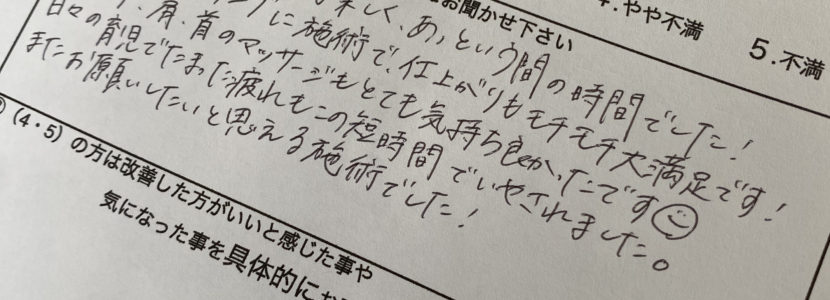 お聞かせ下さい
4.やや不満
5.不満
楽しく、あっという間の時間でした!
に施術で、仕上がりもモチモチ大満足です!
肩・首のマッサージもとても気持ち良かったです
日々の育児でたまった疲れもこの短時間でいやされました。
またお願いしたいと思える施術でした!
(4・5)の方は改善した方がいいと感じた事や
気になった事を具体的に